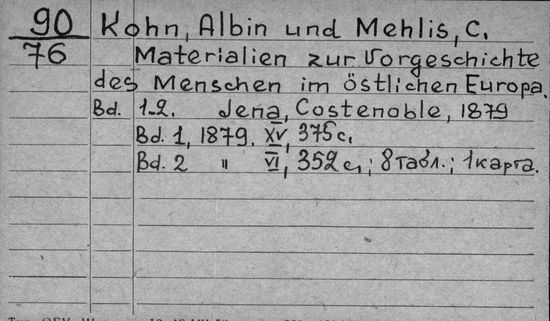 90 Kohn, Albin und Mehlis, C.
76 Materialien zur Vorgeschichte
des Menschen im östlichen Europa.
Bd. 1-2. Jena, Costenoble, 1879
Bd. 1, 1879. XV, 375 с.
Bd. 2 " VI, 352 с.; 8 табл.; 1 карта.